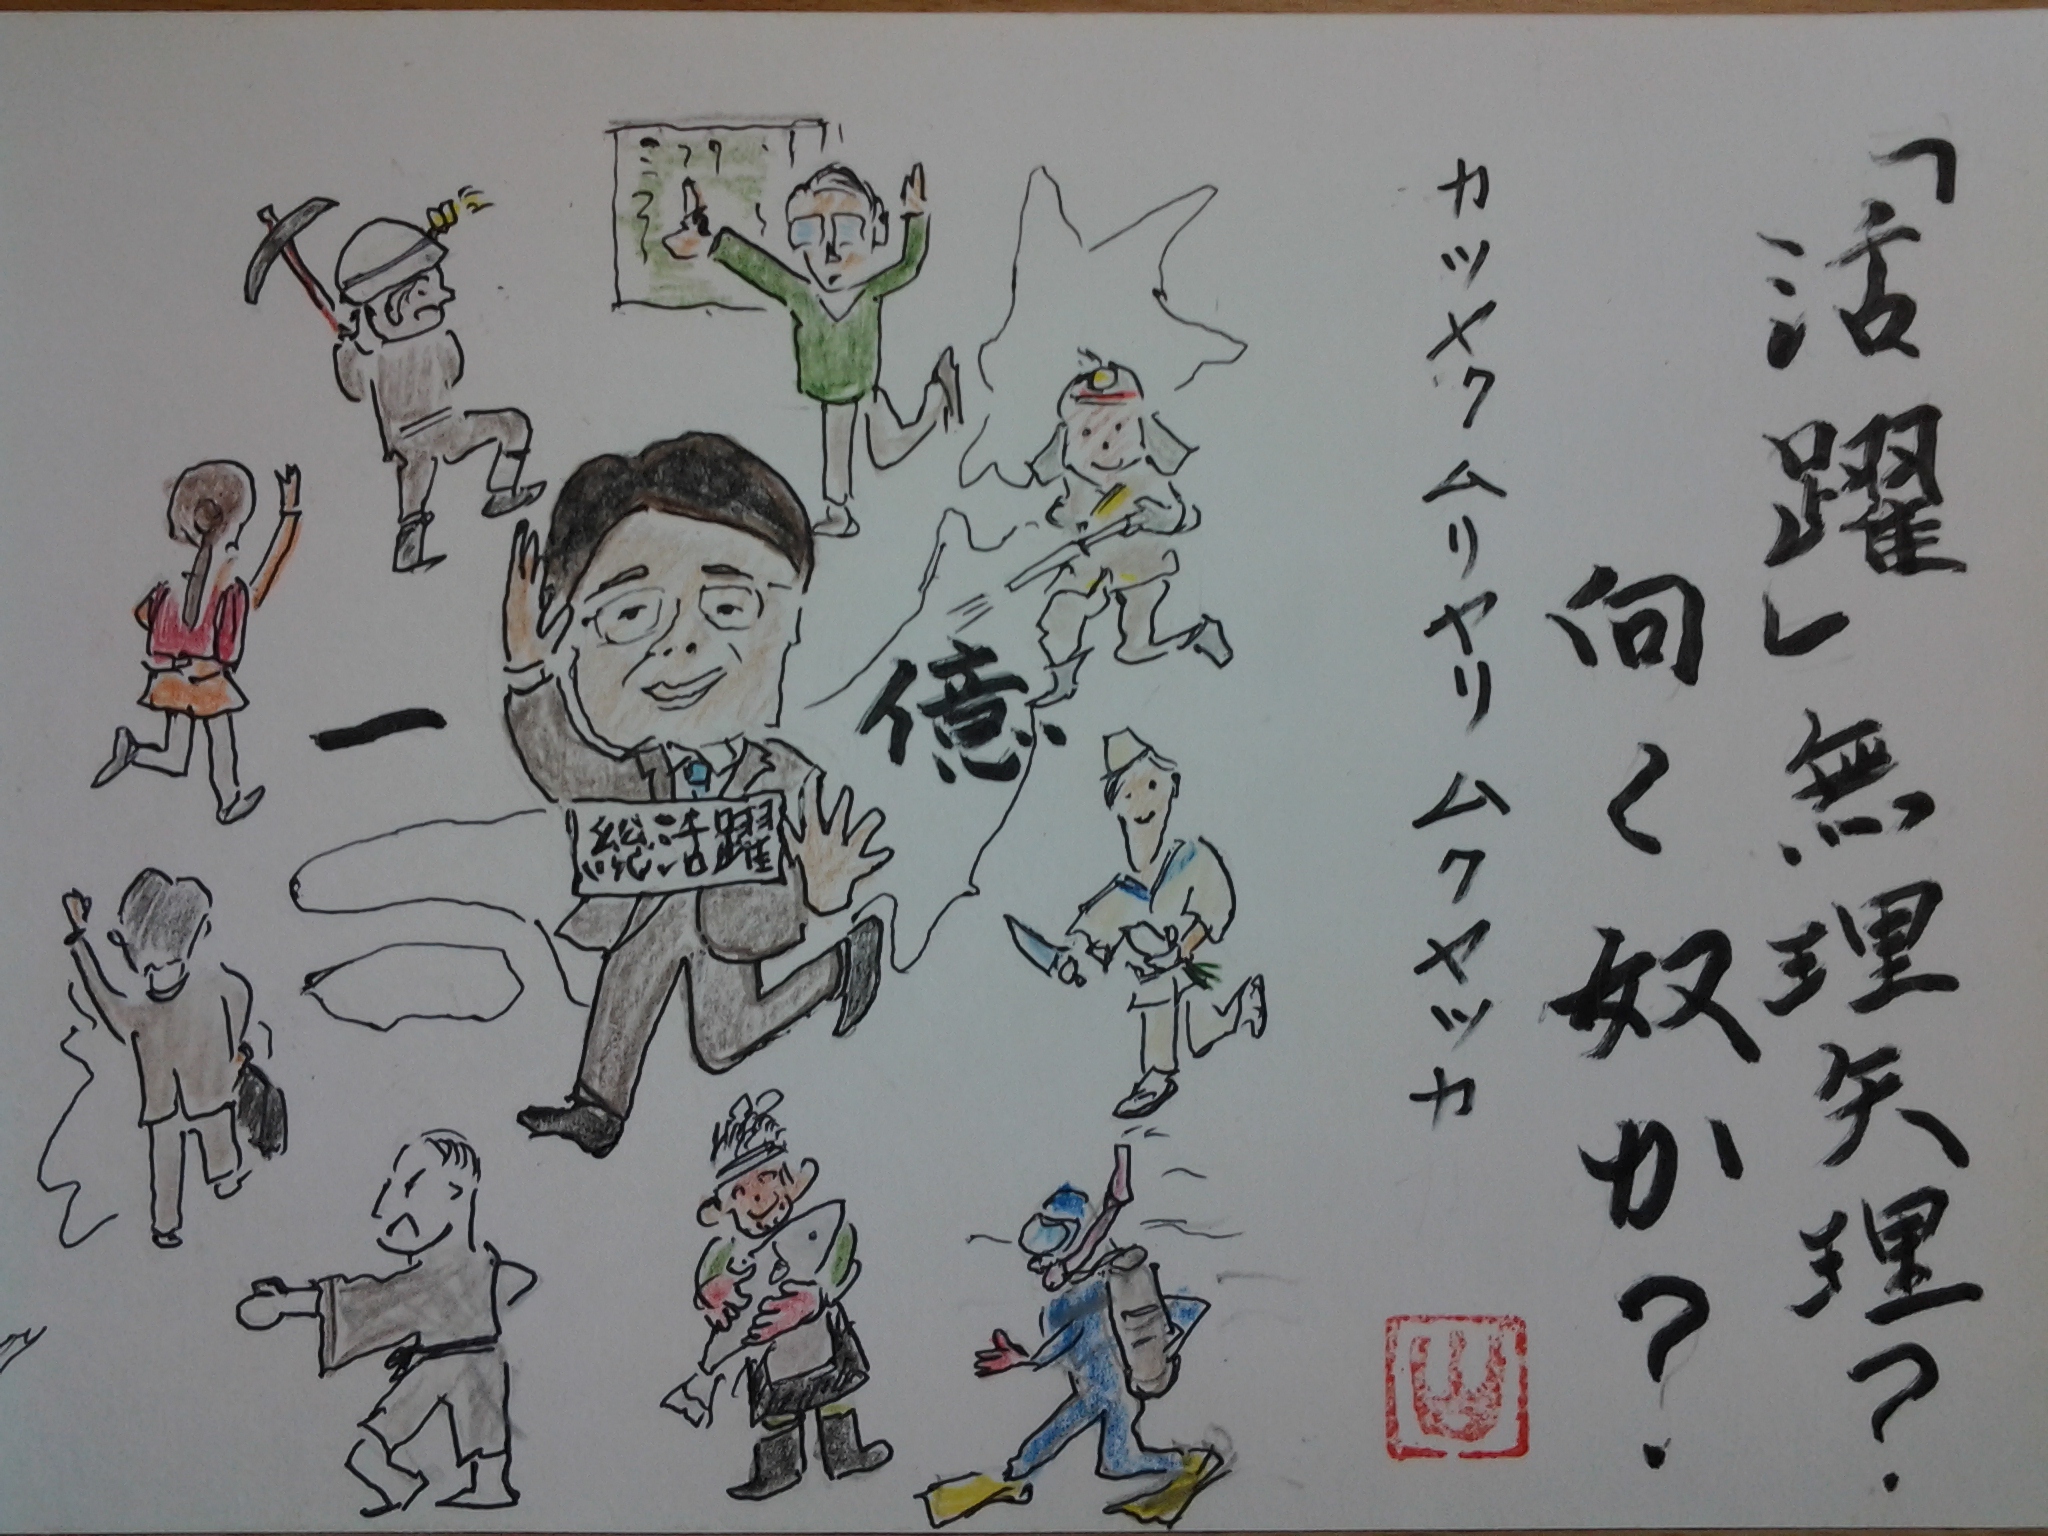 「活躍」無理矢理？
向く奴か？
カツメクムリヤリムクヤツカ
一
億
総活躍